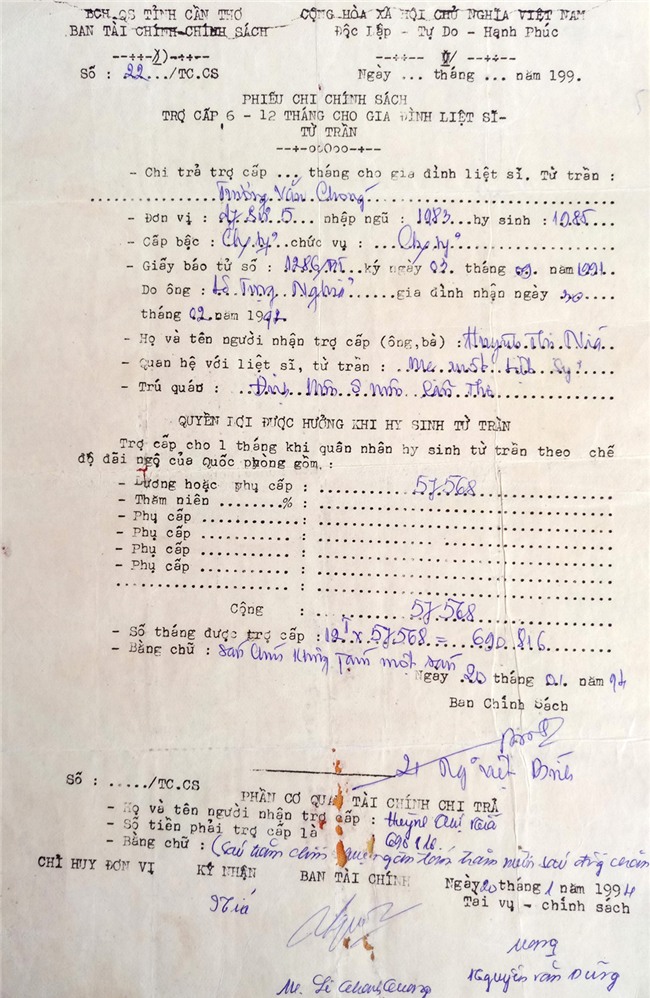 BCH QS TỈNH CẦN THƠ
BAN TÀI CHÍNH-CHÍNH SÁCH
Số : 22.../TC.CS
CỘNG HÒA XÃ HỘI CHỦ NGHĨA VIỆT NAM
Độc Lập - Tự Do - Hạnh Phúc
Ngày ... tháng ... năm 199.
PHIẾU CHI CHÍNH SÁCH
TRỢ CẤP 6 - 12 THÁNG CHO GIA ĐÌNH LIỆT SĨ-
TỪ TRẦN
- Chi trả trợ cấp ... tháng cho gia đình liệt sĩ. Từ trần :
Trương Văn Chong
- Đơn vị : d7 E2 F5 nhập ngũ : 1983 hy sinh : 1985
- Cấp bậc : chức vụ :
- Giấy báo tử số : 1286 ký ngày 03. tháng 09. năm 1991
Do ông : Lê Trọng Nghĩa gia đình nhận ngày 20
tháng 02 năm 1992
- Họ và tên người nhận trợ cấp (ông,bà) : Huỳnh Thị Niá
- Quan hệ với liệt sĩ, từ trần : Mẹ ruột liệt sỹ
- Trú quán : Định Môn Ô Môn Cần Thơ
QUYỀN LỢI ĐƯỢC HƯỞNG KHI HY SINH TỪ TRẦN
Trợ cấp cho 1 tháng khi quân nhân hy sinh từ trần theo chế
độ đãi ngộ của Quốc phòng gồm, :
- Lương hoặc phụ cấp : 57.568
- Thâm niên ........% :
- Phụ cấp ........... :
- Phụ cấp ........... :
- Phụ cấp ........... :
- Phụ cấp ........... :
Cộng : 57.568
- Số tháng được trợ cấp : 12T x 57.568 = 690.816
- Bằng chữ : Sáu chín không tám một sáu
Ngày 20 tháng 01. năm 94
Ban Chính Sách
2/ Ngô Việt Bình
Số : ...../TC.CS
PHẦN CƠ QUAN TÀI CHÍNH CHI TRẢ
- Họ và tên người nhận trợ cấp : Huỳnh Thị Niá
- Số tiền phải trợ cấp là : 690 816
- Bằng chữ : (Sáu trăm chín mươi ngàn tám trăm mười sáu đồng chẵn
CHỈ HUY ĐƠN VỊ KÝ NHẬN BAN TÀI CHÍNH
Ngày 20 tháng 1 năm 1994
Tài vụ - chính sách
Niá
Nguyễn Văn Dũng